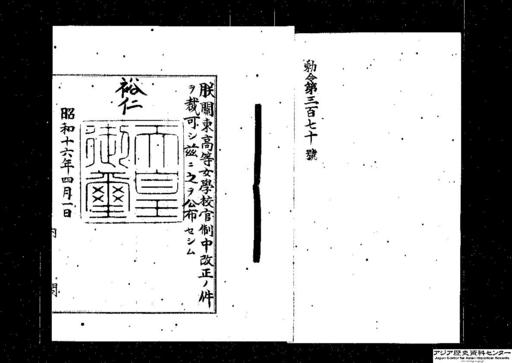 勅令第三百七十號
朕關東高等女學校官制中改正ノ件
ヲ裁可シ茲ニ之ヲ公布セシム
裕仁
天皇
御璽
昭和十六年四月一日
内閣
アジア歴史資料センター
Japan Center for Asian Historical Records